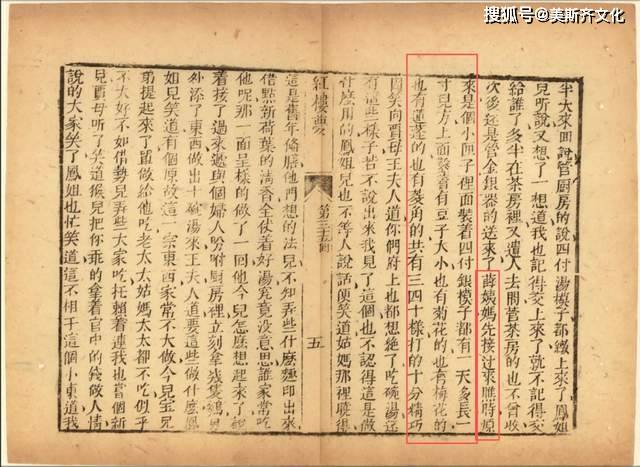 搜狐号@美斯齐文化
半天來回說管厨房的說四付湯模子都繳上來了鳳姐
兒聽說又想了一想道我也記得交上來了就不記得交
給誰了多半在茶房裡又遣人去問管茶房的也不曾收
次後還是管金銀器的送來了薛姨媽先接過來瞧時原
來是個小匣子裡面裝着四付銀模子都有一尺多長一
寸見方上面鏨着有豆子大小也有菊花的也有梅花的
也有蓮蓬的也有菱角的共有三四十樣打的十分精巧
因笑向賈母王夫人道你們府上也都想絕了吃碗湯還
有這些樣子若不說出來我見了這個也不認得這是做
什麼用的鳳姐兒也不等人說話便笑道姑媽那裡曉得
紅樓夢 第三十五回 五
這是舊年俻膳他們想的法兒不知弄些什麼麵印出來
借點新荷葉的清香全仗着好湯究竟没意思誰家常吃
他呢那一面呈樣的做了一回他今兒怎麼想起來了說
着接了過來遞與個婦人吩咐厨房裡立刻拿幾隻鷄另
外添了東西做出十碗湯來王夫人道要這些做什麼鳳
姐兒笑道有個原故這一宗東西家常不大做今兒寶兄
弟提起來了單做給他吃老太太姑媽太太都不吃似乎
不大好不如借勢兒弄些大家吃托賴着連我也嘗個新
兒賈母聽了笑道猴兒把你乖的拿着官中的錢做人情
說的大家笑了鳳姐也忙笑道這不相干這個小東道我